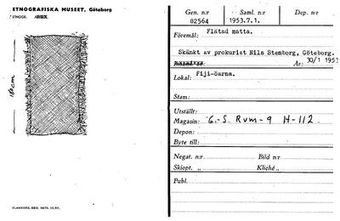 ETNOGRAFISKA MUSEET, Göteborg
ETNOGR.
Gen. n:r
02564
Saml. n:r
1953.7.1.
Dep. n:r
Föremål: Flätad matta.
Skänkt av prokurist Nils Stenborg, Göteborg.
År: 30/1 1953
Lokal: Fiji-öarna.
Stam:
Utställt:
Magasin: G.-S. Rum-9 H-112
Depon:
Byte till:
Negat. n:r
Bild n:r
Skiopt. „
Kliché „
Publ.